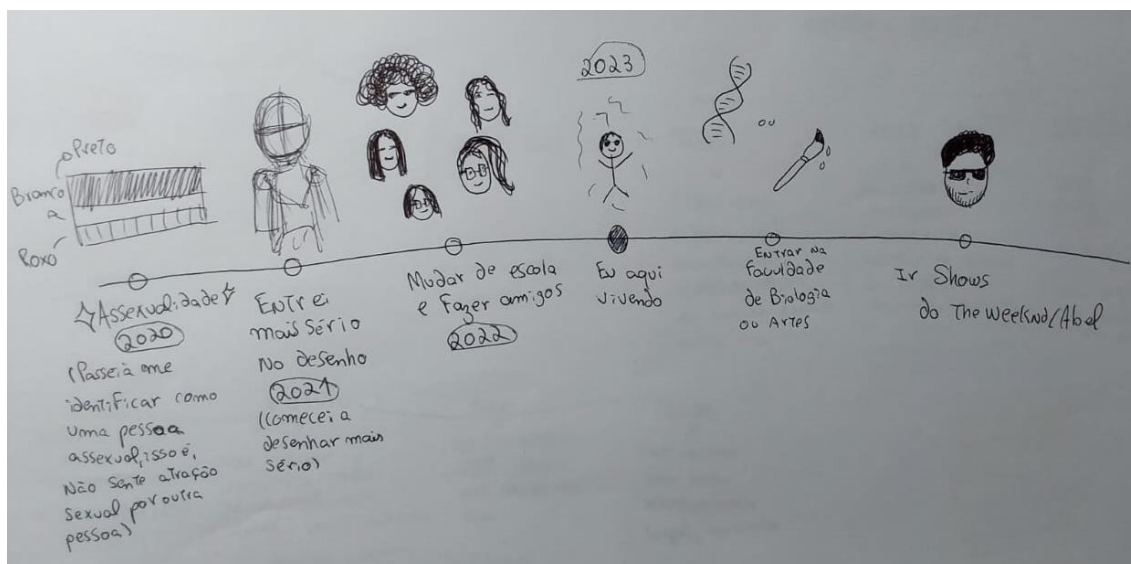 Preto
Branco
a
Roxó
Assexualidade
2020
(Passei a me
identificar como
uma pessoa
assexual, isso é,
Não sente atração
sexual por outra
pessoa)
Entrei
mais sério
No desenho
2021
(comecei a
desenhar mais
sério)
Mudar de escola
e Fazer amigos
2022
2023
Eu aqui
vivendo
ou
Entrar na
Faculdade
de Biologia
ou Artes
Ir Shows
do The Weeknd/Abel